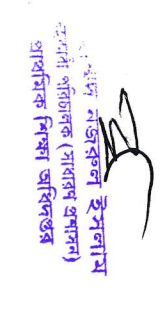 নজরুল ইসলাম
পরিচালক (সাধারণ প্রশাসন)
প্রাথমিক শিক্ষা অধিদপ্তর